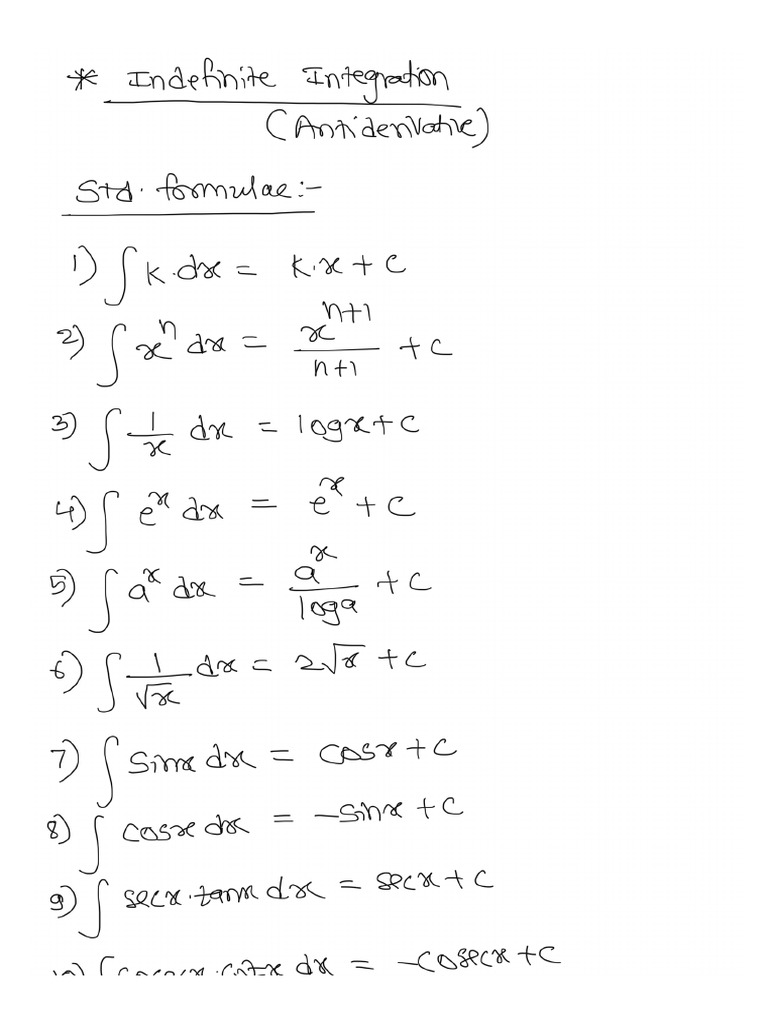 * Indefinite Integration
(Antiderivative)
Std. formulae:-
1) ∫ k.dx = k.x + c
2) ∫ xⁿ dx = xⁿ⁺¹/n+1 + c
3) ∫ 1/x dx = logx + c
4) ∫ eˣ dx = eˣ + c
5) ∫ aˣ dx = aˣ/loga + c
6) ∫ 1/√x dx = 2√x + c
7) ∫ sinx dx = cosx + c
8) ∫ cosx dx = -sinx + c
9) ∫ secx.tanx dx = secx + c
10) ∫ cosecx.cotx dx = -cosecx + c